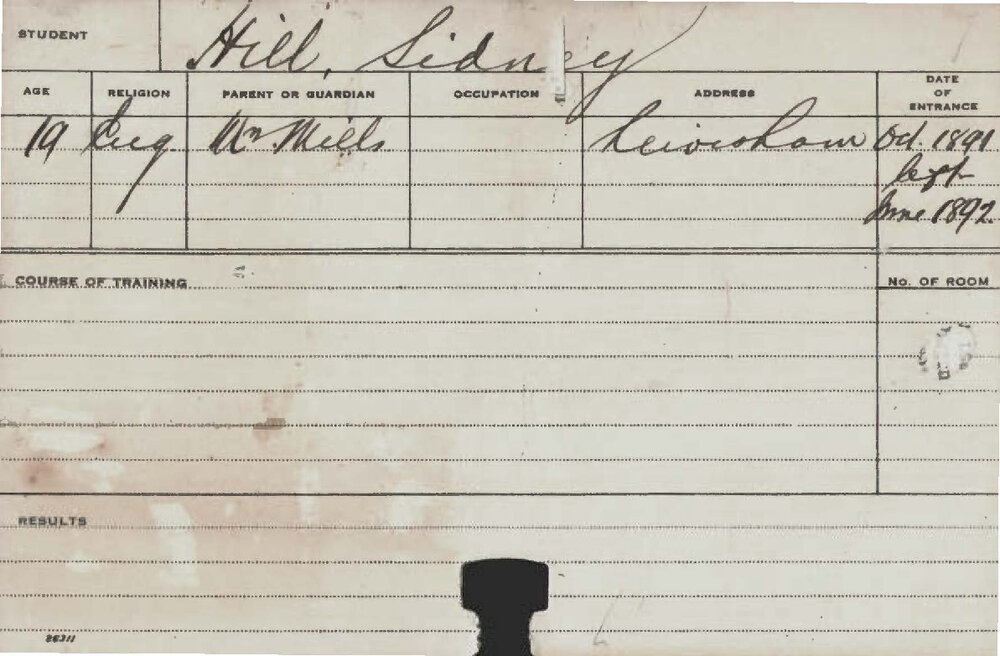 STUDENT Hill, Sidney
AGE RELIGION PARENT OR GUARDIAN OCCUPATION ADDRESS DATE OF ENTRANCE
19 Eng. Mr. Mills Lewisham Oct. 1891
left
June 1892.
COURSE OF TRAINING No. OF ROOM
RESULTS
26311